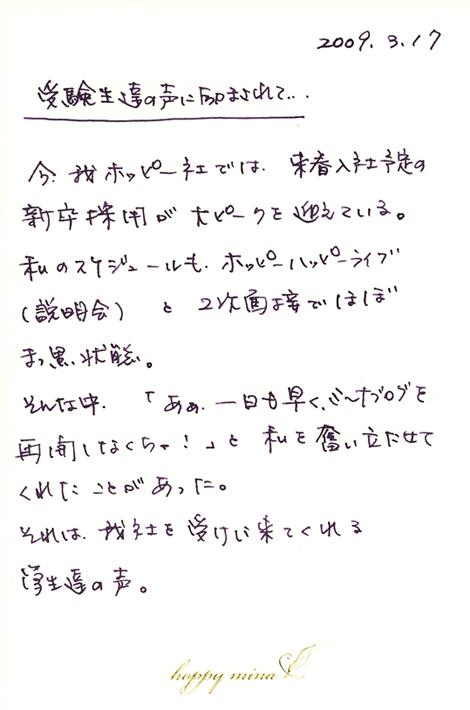 2009.3.17
受験生達の声に励まされて...
今、我ホッピー社では、来春入社予定の
新卒採用が大ピークを迎えている。
私のスケジュールも、ホッピーハッピーライブ
(説明会) と 2次面接でほぼ
まっ黒、状態。
そんな中、「あぁ、一日も早く、ミーナブログを
再開しなくちゃ!」と 私を奮い立たせて
くれたことがあった。
それは、我社を受けに来てくれる
学生達の声。
hoppy mina